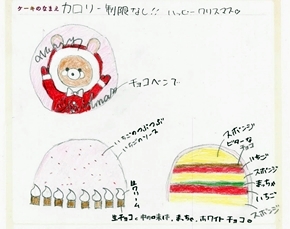 ケーキのなまえ カロリー制限なし!! ハッピークリスマス。
チョコペンで
いちごのつぶつぶ
いちごのソース
生クリーム
スポンジ
ビターな
チョコ
いちご
スポンジ
まっちゃ
いちご
スポンジ
生チョコ。中の4味は、まっちゃ、ホワイトチョコ。